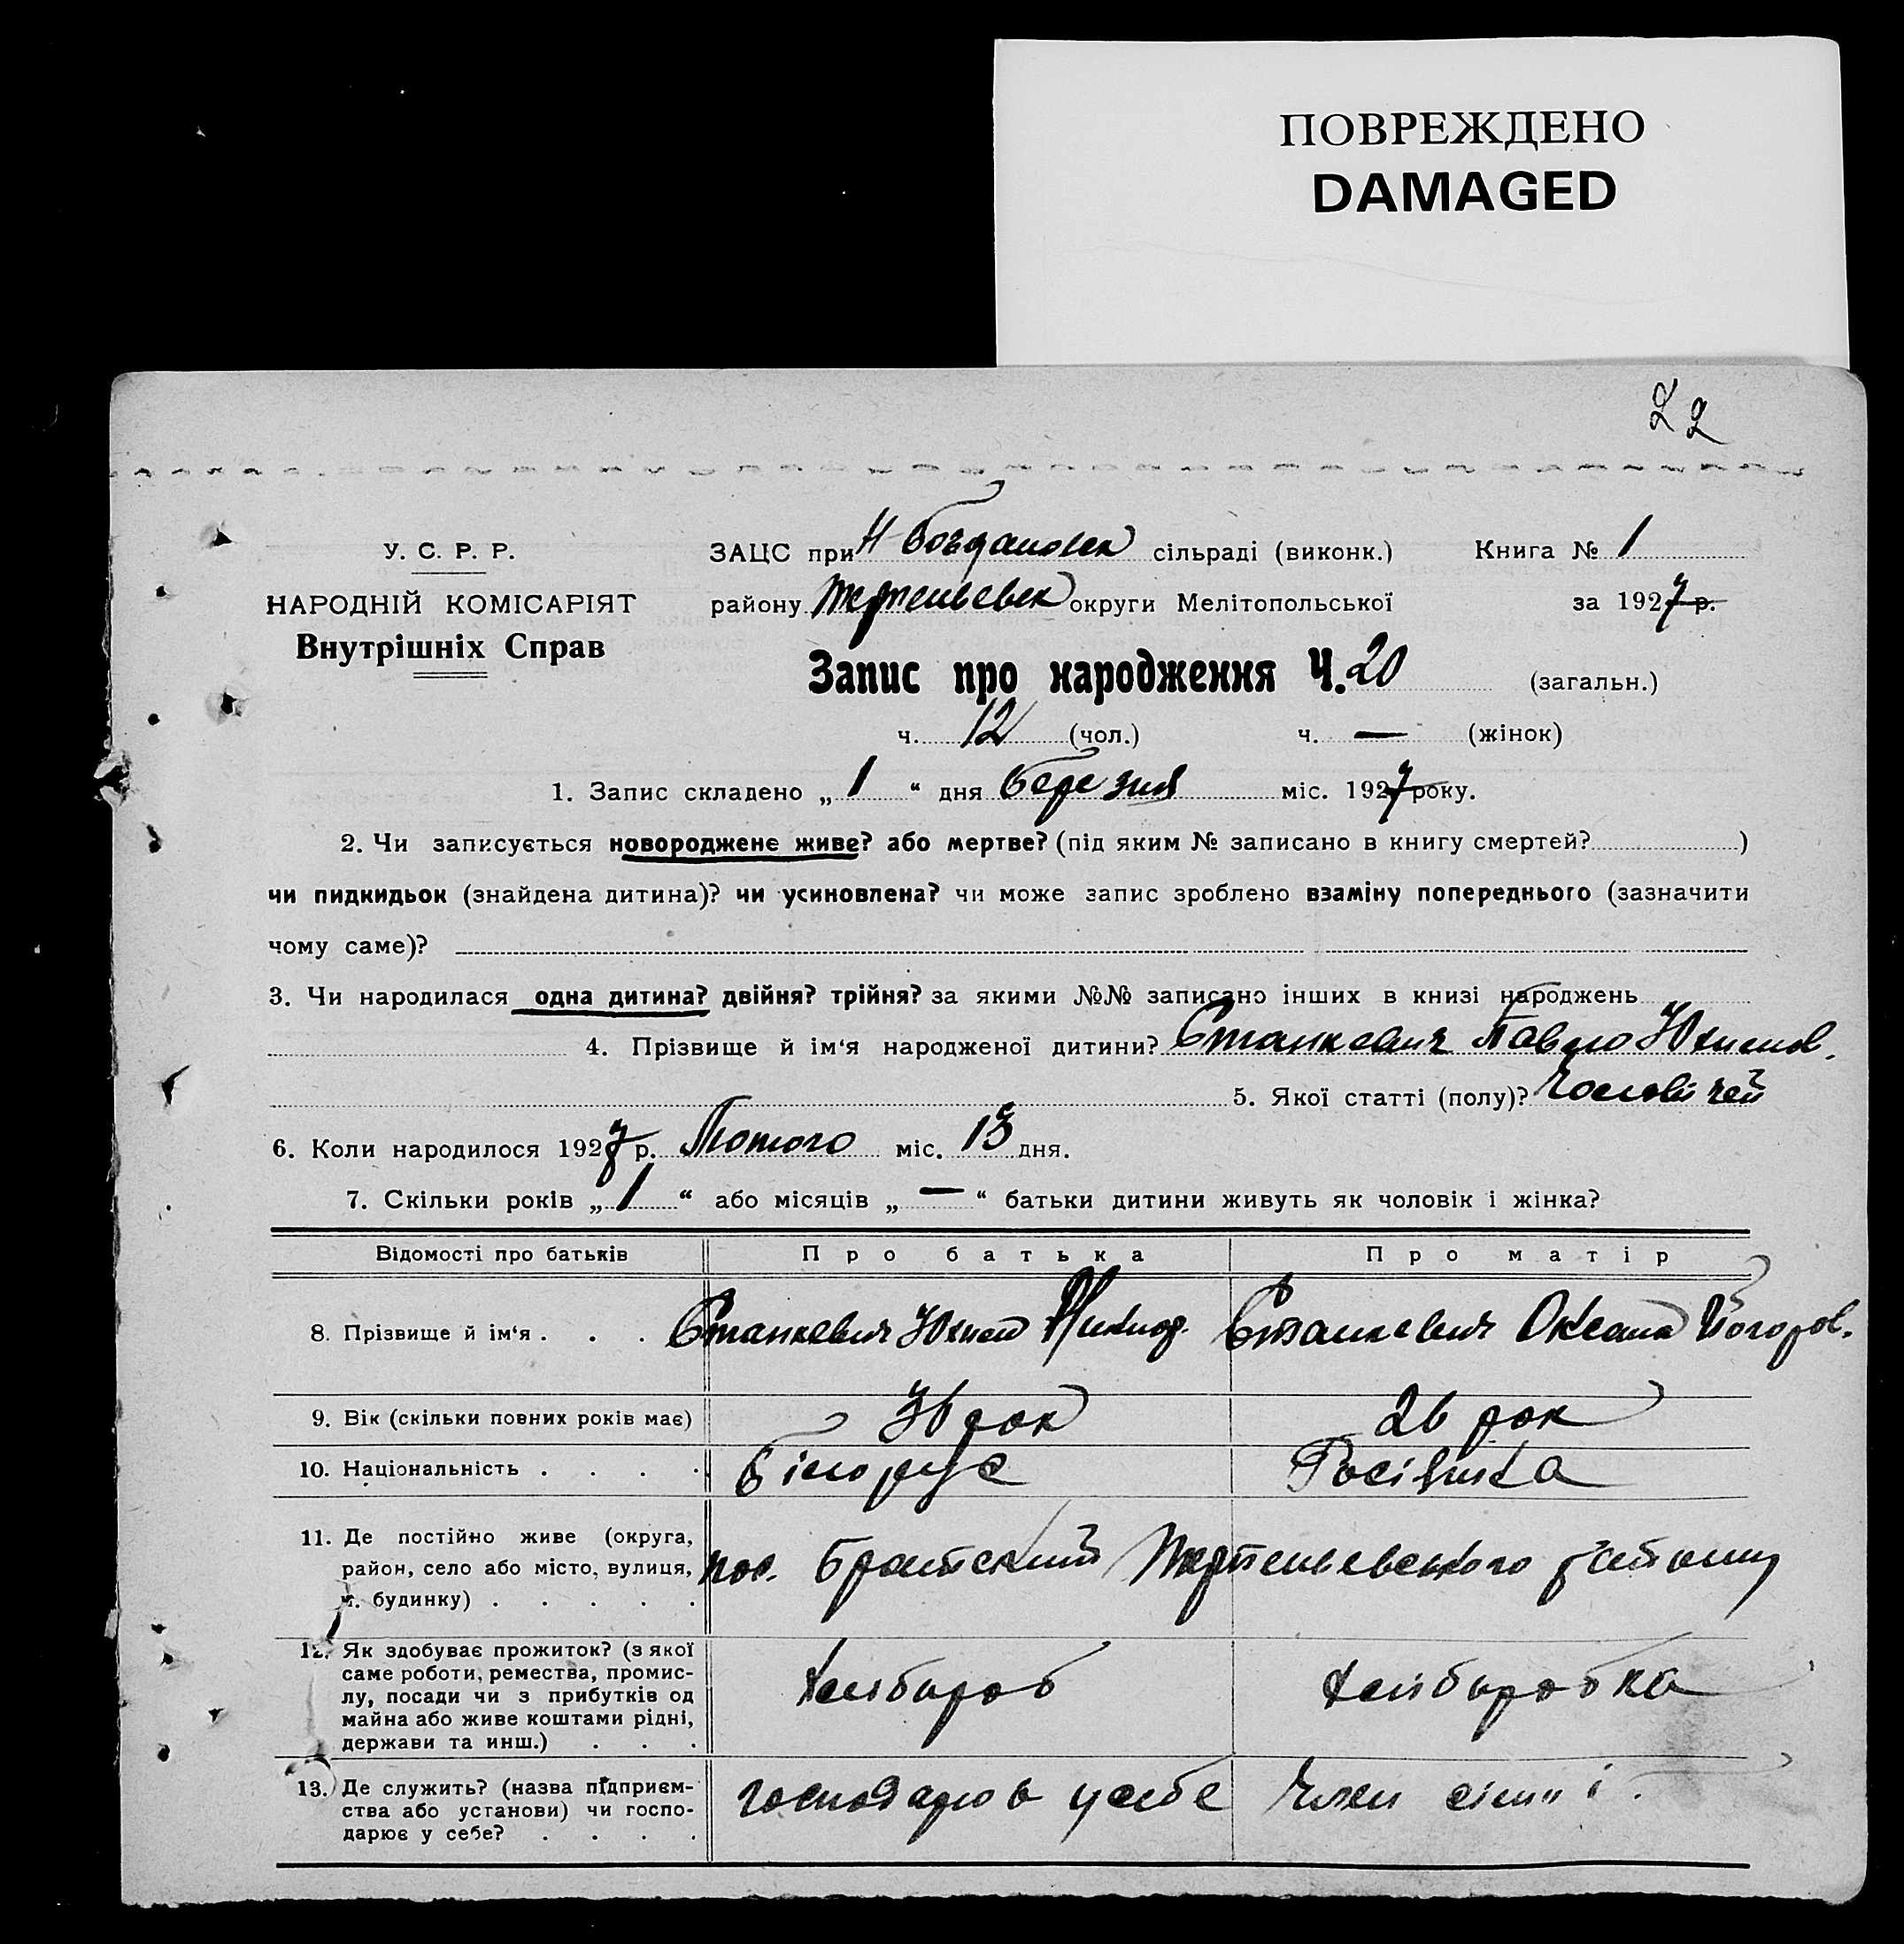 ПОВРЕЖДЕНО
DAMAGED
22
У. С. Р. Р.
НАРОДНІЙ КОМІСАРІЯТ
Внутрішніх Справ
ЗАЦС при Н Богдановск сільраді (виконк.) Книга № 1
району округи Мелітопольської за 1927 р.
Запис про народження Ч. 20 (загальн.)
ч. 12 (чол.) ч. — (жінок)
1. Запис складено „ 1 “ дня березня міс. 1927 року.
2. Чи записується новороджене живе? або мертве? (під яким № записано в книгу смертей? )
чи пидкидьок (знайдена дитина)? чи усиновлена? чи може запис зроблено взаміну попереднього (зазначити
чому саме)?
3. Чи народилася одна дитина? двійня? трійня? за якими №№ записано інших в книзі народжень
4. Прізвище й ім‘я народженої дитини? Станкевич Павло Юхимов.
5. Якої статті (полу)? Чоловічей
6. Коли народилося 1927 р. Лютого міс. 13 дня.
7. Скільки років „ 1 “ або місяців „ — “ батьки дитини живуть як чоловік і жінка?
Відомості про батьків Про батька Про матір
8. Прізвище й ім‘я . . . Станкевич Юхим Станкевич Оксана Йогоров.
9. Вік (скільки повних років має) 36 рок 26 рок
10. Національність . . . . Білорус Росіянка
11. Де постійно живе (округа,
район, село або місто, вулиця,
ч. будинку) . . . . .
пос. Братский району
12. Як здобуває прожиток? (з якої
саме роботи, ремества, промис-
лу, посади чи з прибутків од
майна або живе коштами рідні,
держави та инш.) . . .
Хлібороб Хліборобка
13. Де служить? (назва підприєм-
ства або установи) чи госпо-
дарює у себе? . . . .
господарює у себе Член сімї.